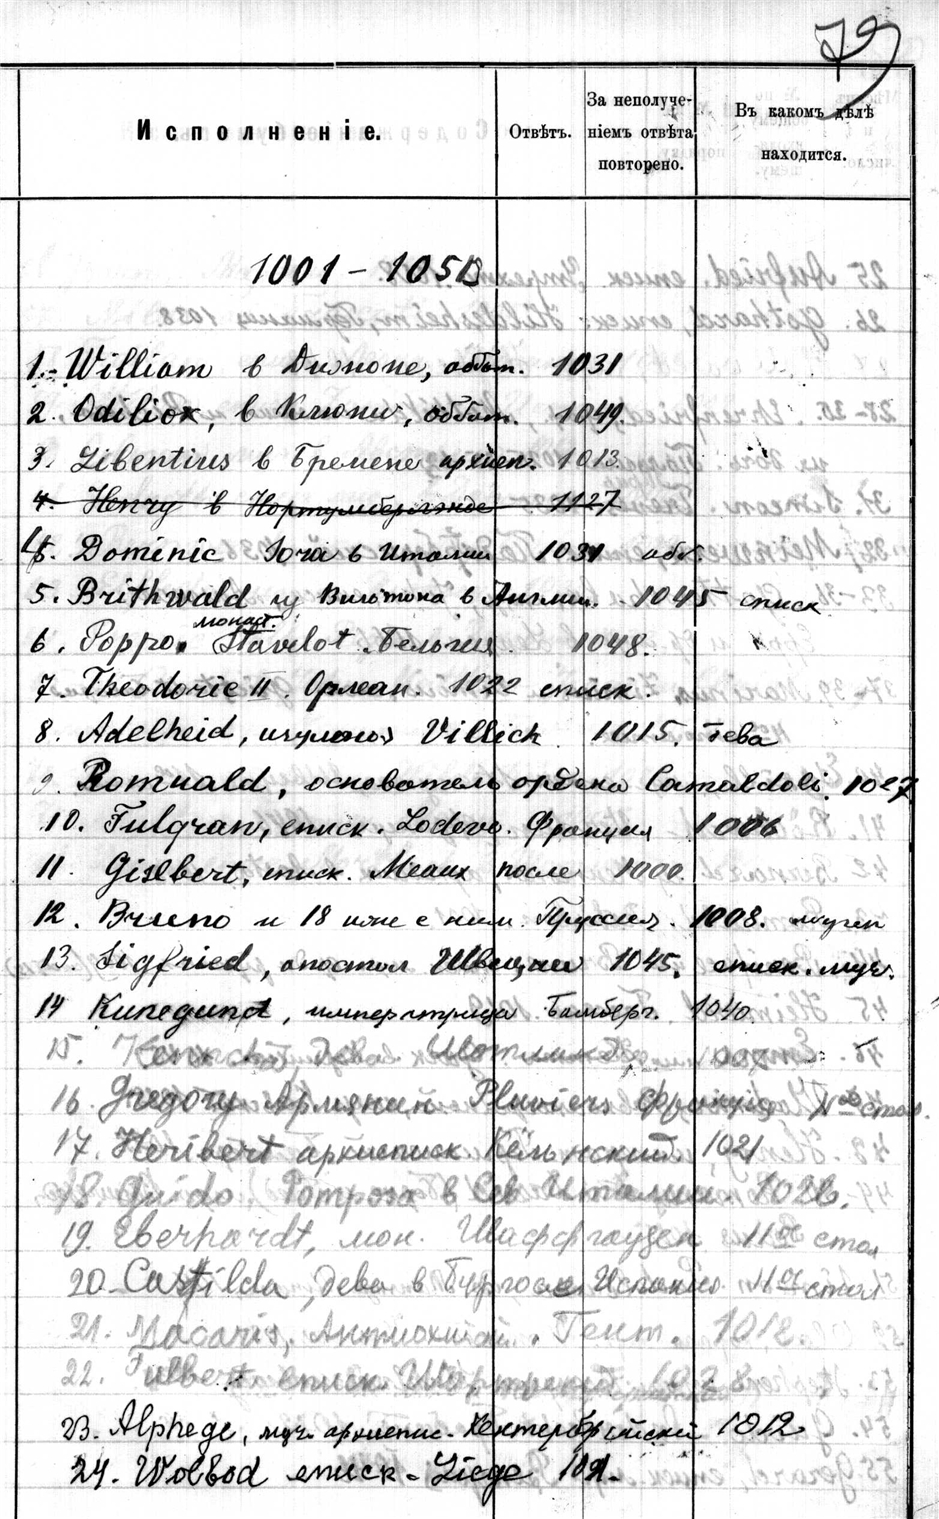 79
Исполненіе.
Отвѣтъ.
За неполуче-
ніемъ отвѣта
повторено.
Въ какомъ дѣлѣ
находится.
1001 - 1050
1. William в Дижоне, аббат. 1031
2. Odiliox, в Клюни, аббат. 1049.
3. Libentius в Бремене архиеп. 1013.
4. Henry в Нортумберлэнде 1127
4. Dominic Sora в Италии 1031 абб.
5. Brithwald из Вильтона в Англии. 1045 еписк
монаст.
6. Poppo. Stavelot. Бельгия. 1048.
7. Theodoric II. Орлеан. 1022 еписк.
8. Adelheid, Villich 1015. дева
9. Romuald, основатель ордена Camaldoli. 1027
10. Fulgran, еписк. Lodève. Франция 1006
11. Gislbert, еписк. Meaux после 1000.
12. Bruno и 18 иже с ним. Пруссия. 1008. мучен
13. Sigfried, апостол Швеции 1045. еписк. муч.
14 Kunegund, императрица Бамберг. 1040.
15. дева
16. Gregory Армянин Pluviers Франция стол.
17. Heribert архиеписк Кёльнский 1021
18. Guido. Pomposa в Сев Италии.
19. Eberhardt, мон. Шаффгаузен 11ое стол
20. Castilda, дева в Бургосе Испания 11ое стол
21. Macaris, Антиохийск. Гент. 1012.
22. Fulbert еписк. Шартрский 1028
23. Alphege, муч. архиепис. Кентерберийский 1012
24. Wolbod еписк. Liege